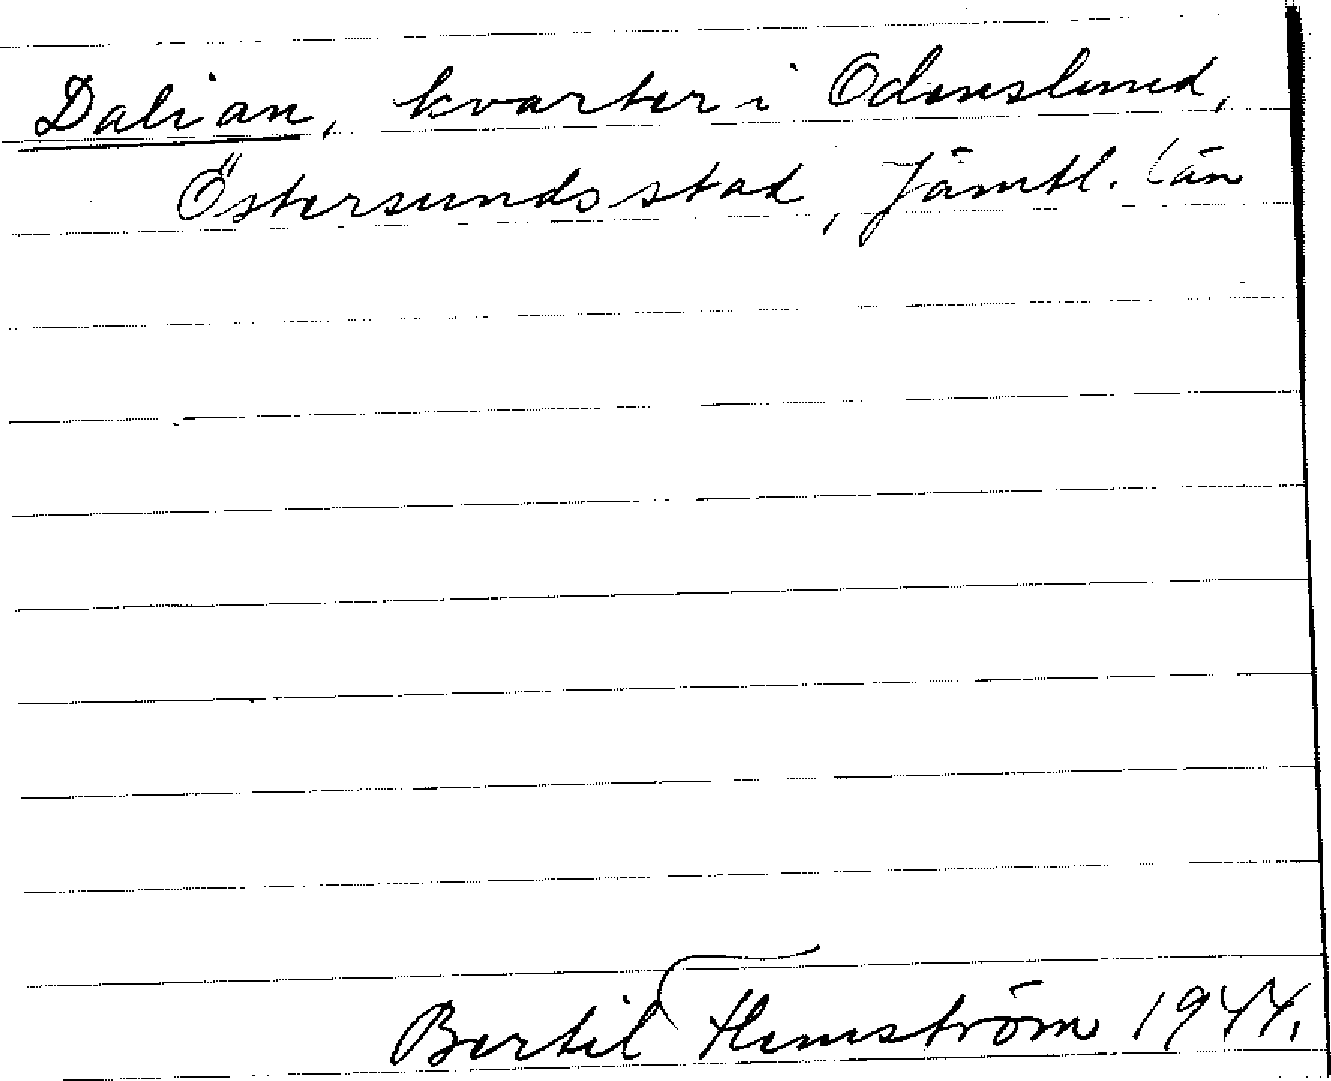 Dalian, kvarter i Odenslund,
Östersunds stad, Jämtl. län
Bertil Flemström 1944.